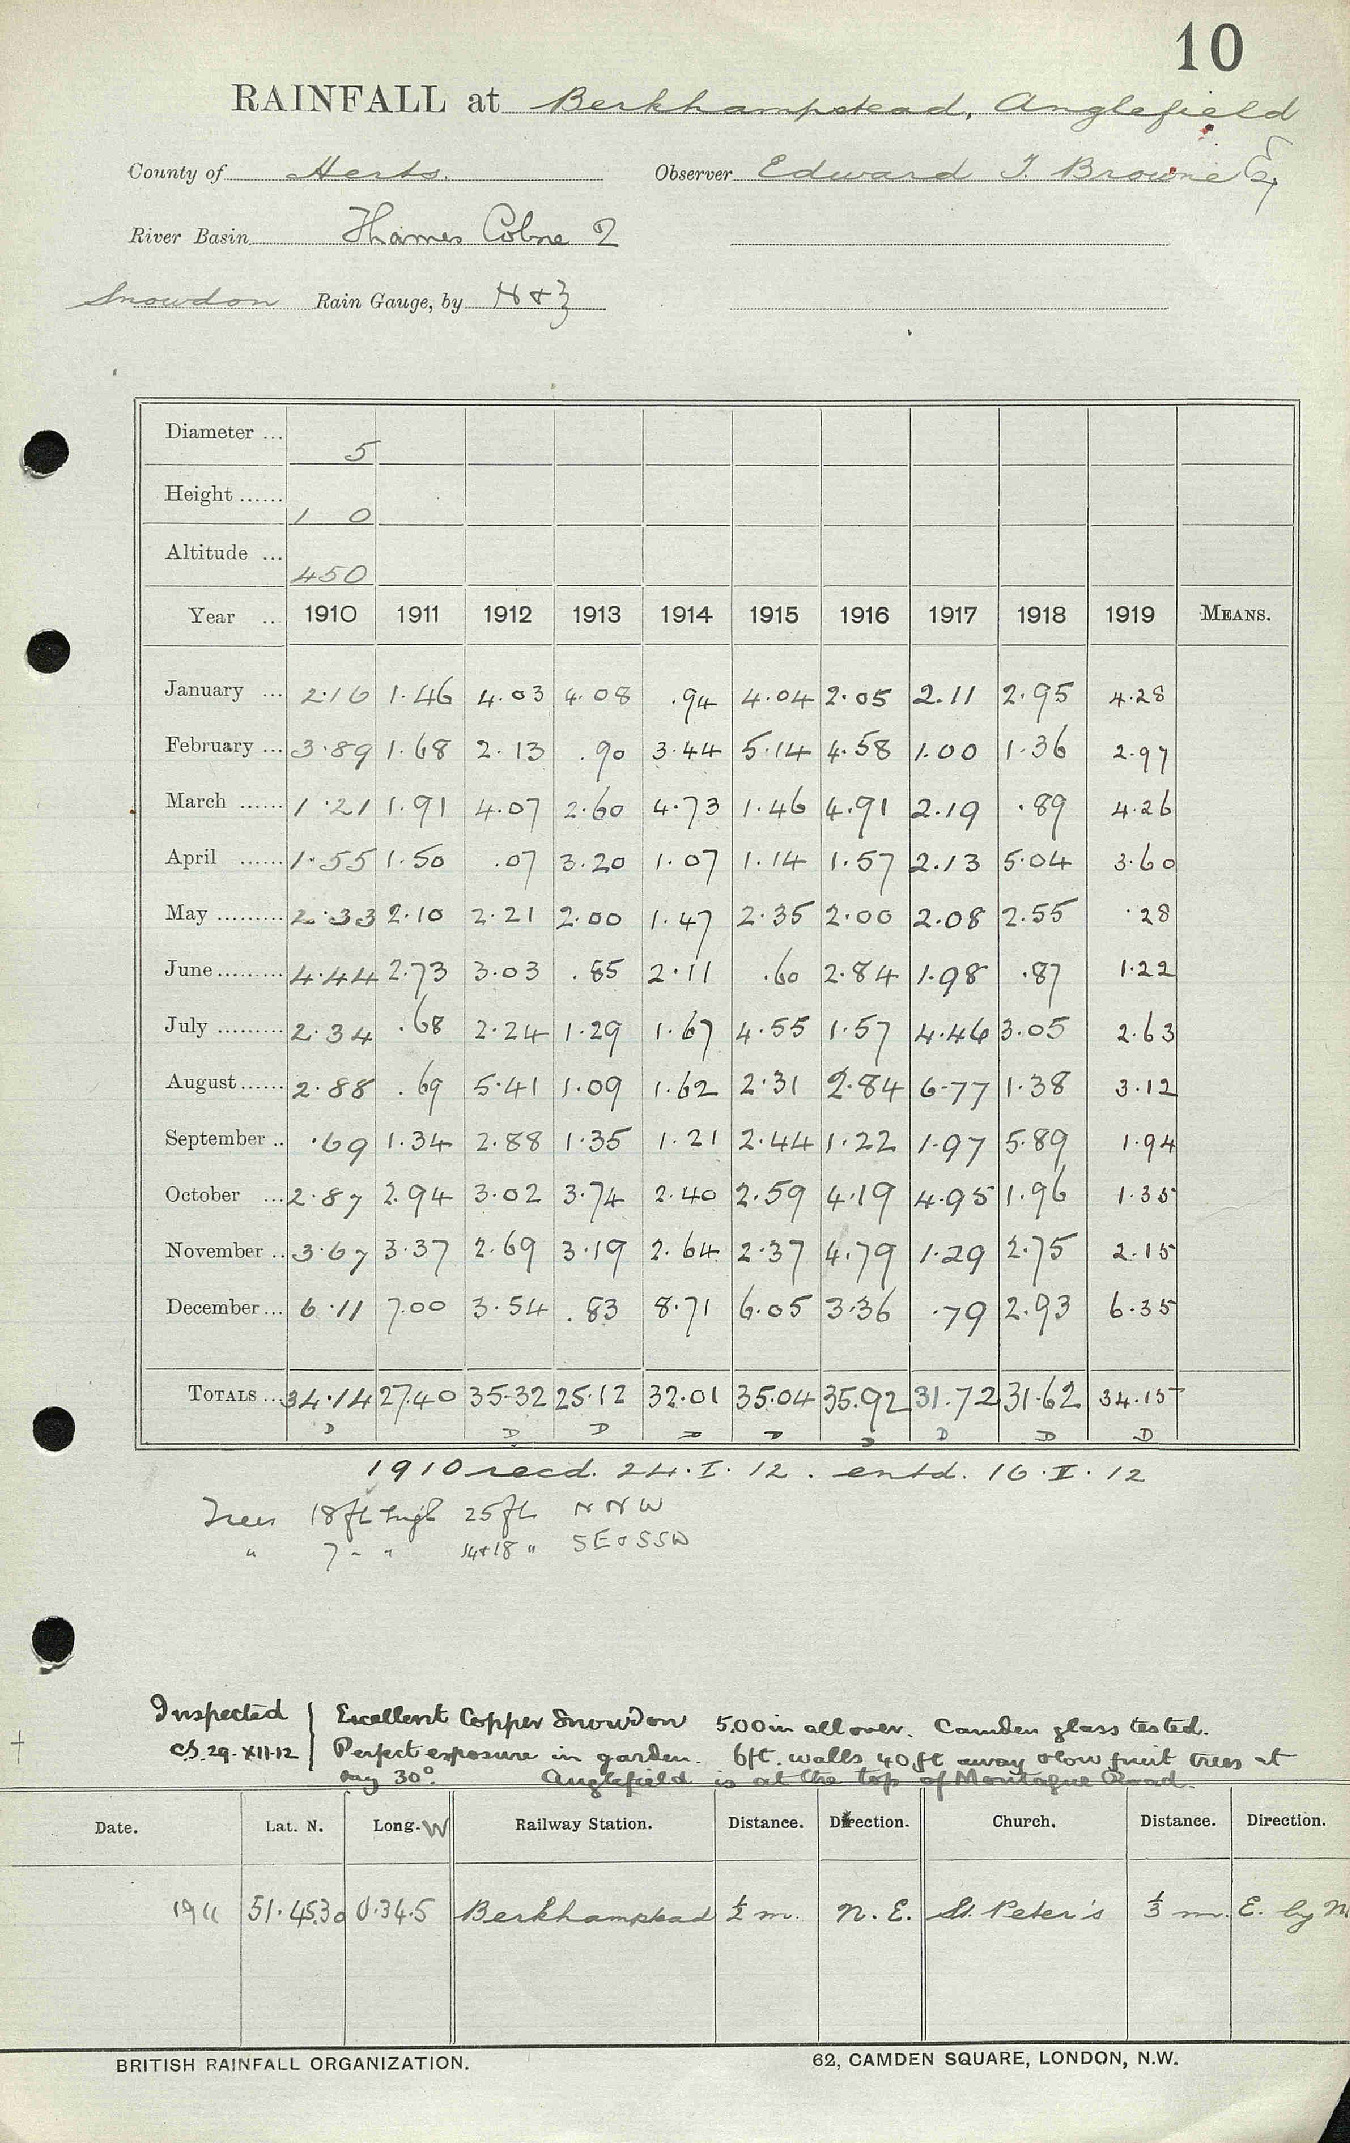 10
RAINFALL at Berkhampstead, Anglefield
County of Herts. Observer Edward T. Browne Esq
River Basin Thames Colne 2
Snowdon Rain Gauge, by N & Z
Diameter ... 5
Height ...... 1 0
Altitude ... 450
Year .. 1910 1911 1912 1913 1914 1915 1916 1917 1918 1919 MEANS.
January ... 2.16 1.46 4.03 4.08 .94 4.04 2.05 2.11 2.95 4.28
February ... 3.89 1.68 2.13 .90 3.44 5.14 4.58 1.00 1.36 2.97
March ...... 1.21 1.91 4.07 2.60 4.73 1.46 4.91 2.19 .89 4.26
April ...... 1.55 1.50 .07 3.20 1.07 1.14 1.57 2.13 5.04 3.60
May ......... 2.33 2.10 2.21 2.00 1.47 2.35 2.00 2.08 2.55 .28
June ......... 4.44 2.73 3.03 .85 2.11 .60 2.84 1.98 .87 1.22
July ......... 2.34 .68 2.24 1.29 1.67 4.55 1.57 4.46 3.05 2.63
August ...... 2.88 .69 5.41 1.09 1.62 2.31 2.84 6.77 1.38 3.12
September .. .69 1.34 2.88 1.35 1.21 2.44 1.22 1.97 5.89 1.94
October ... 2.87 2.94 3.02 3.74 2.40 2.59 4.19 4.95 1.96 1.35
November .. 3.67 3.37 2.69 3.19 2.64 2.37 4.79 1.29 2.75 2.15
December ... 6.11 7.00 3.54 .83 8.71 6.05 3.36 .79 2.93 6.35
TOTALS ... 34.14 27.40 35.32 25.12 32.01 35.04 35.92 31.72 31.62 34.15
D D D D D D D D D
1910 recd. 24.I.12. entd. 16.II.12
Trees 18ft high 25ft NNW
" 7 " " 14+18 " SE & SSW
Inspected Excellent Copper Snowdon 5.00in all over. Camden glass tested.
CS. 29.XII.12 Perfect exposure in garden. 6ft. walls 40ft away & low fruit trees at
say 30°. Anglefield is at the top of Montague Road.
Date. Lat. N. Long. W Railway Station. Distance. Direction. Church. Distance. Direction.
1911 51.45.30 0.34.5 Berkhampstead ½ m. N.E. St. Peter's ⅓ m. E. by N.
BRITISH RAINFALL ORGANIZATION. 62, CAMDEN SQUARE, LONDON, N.W.